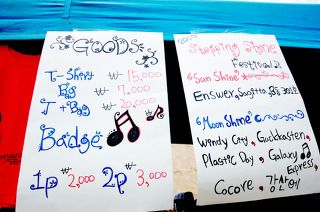 GOODS
T-Shirt ₩ 15,000
Bg ₩ 7,000
T + Bg ₩ 20,000
Badge
1p ₩2,000 2p ₩3,000
Stepping Stone
Festival
"Sun Shine"
Enswer, Sagitta,
"Moon Shine"
Windy City, Guckkasten,
Plastic Day, Galaxy
Express,
Cocore, 강산에